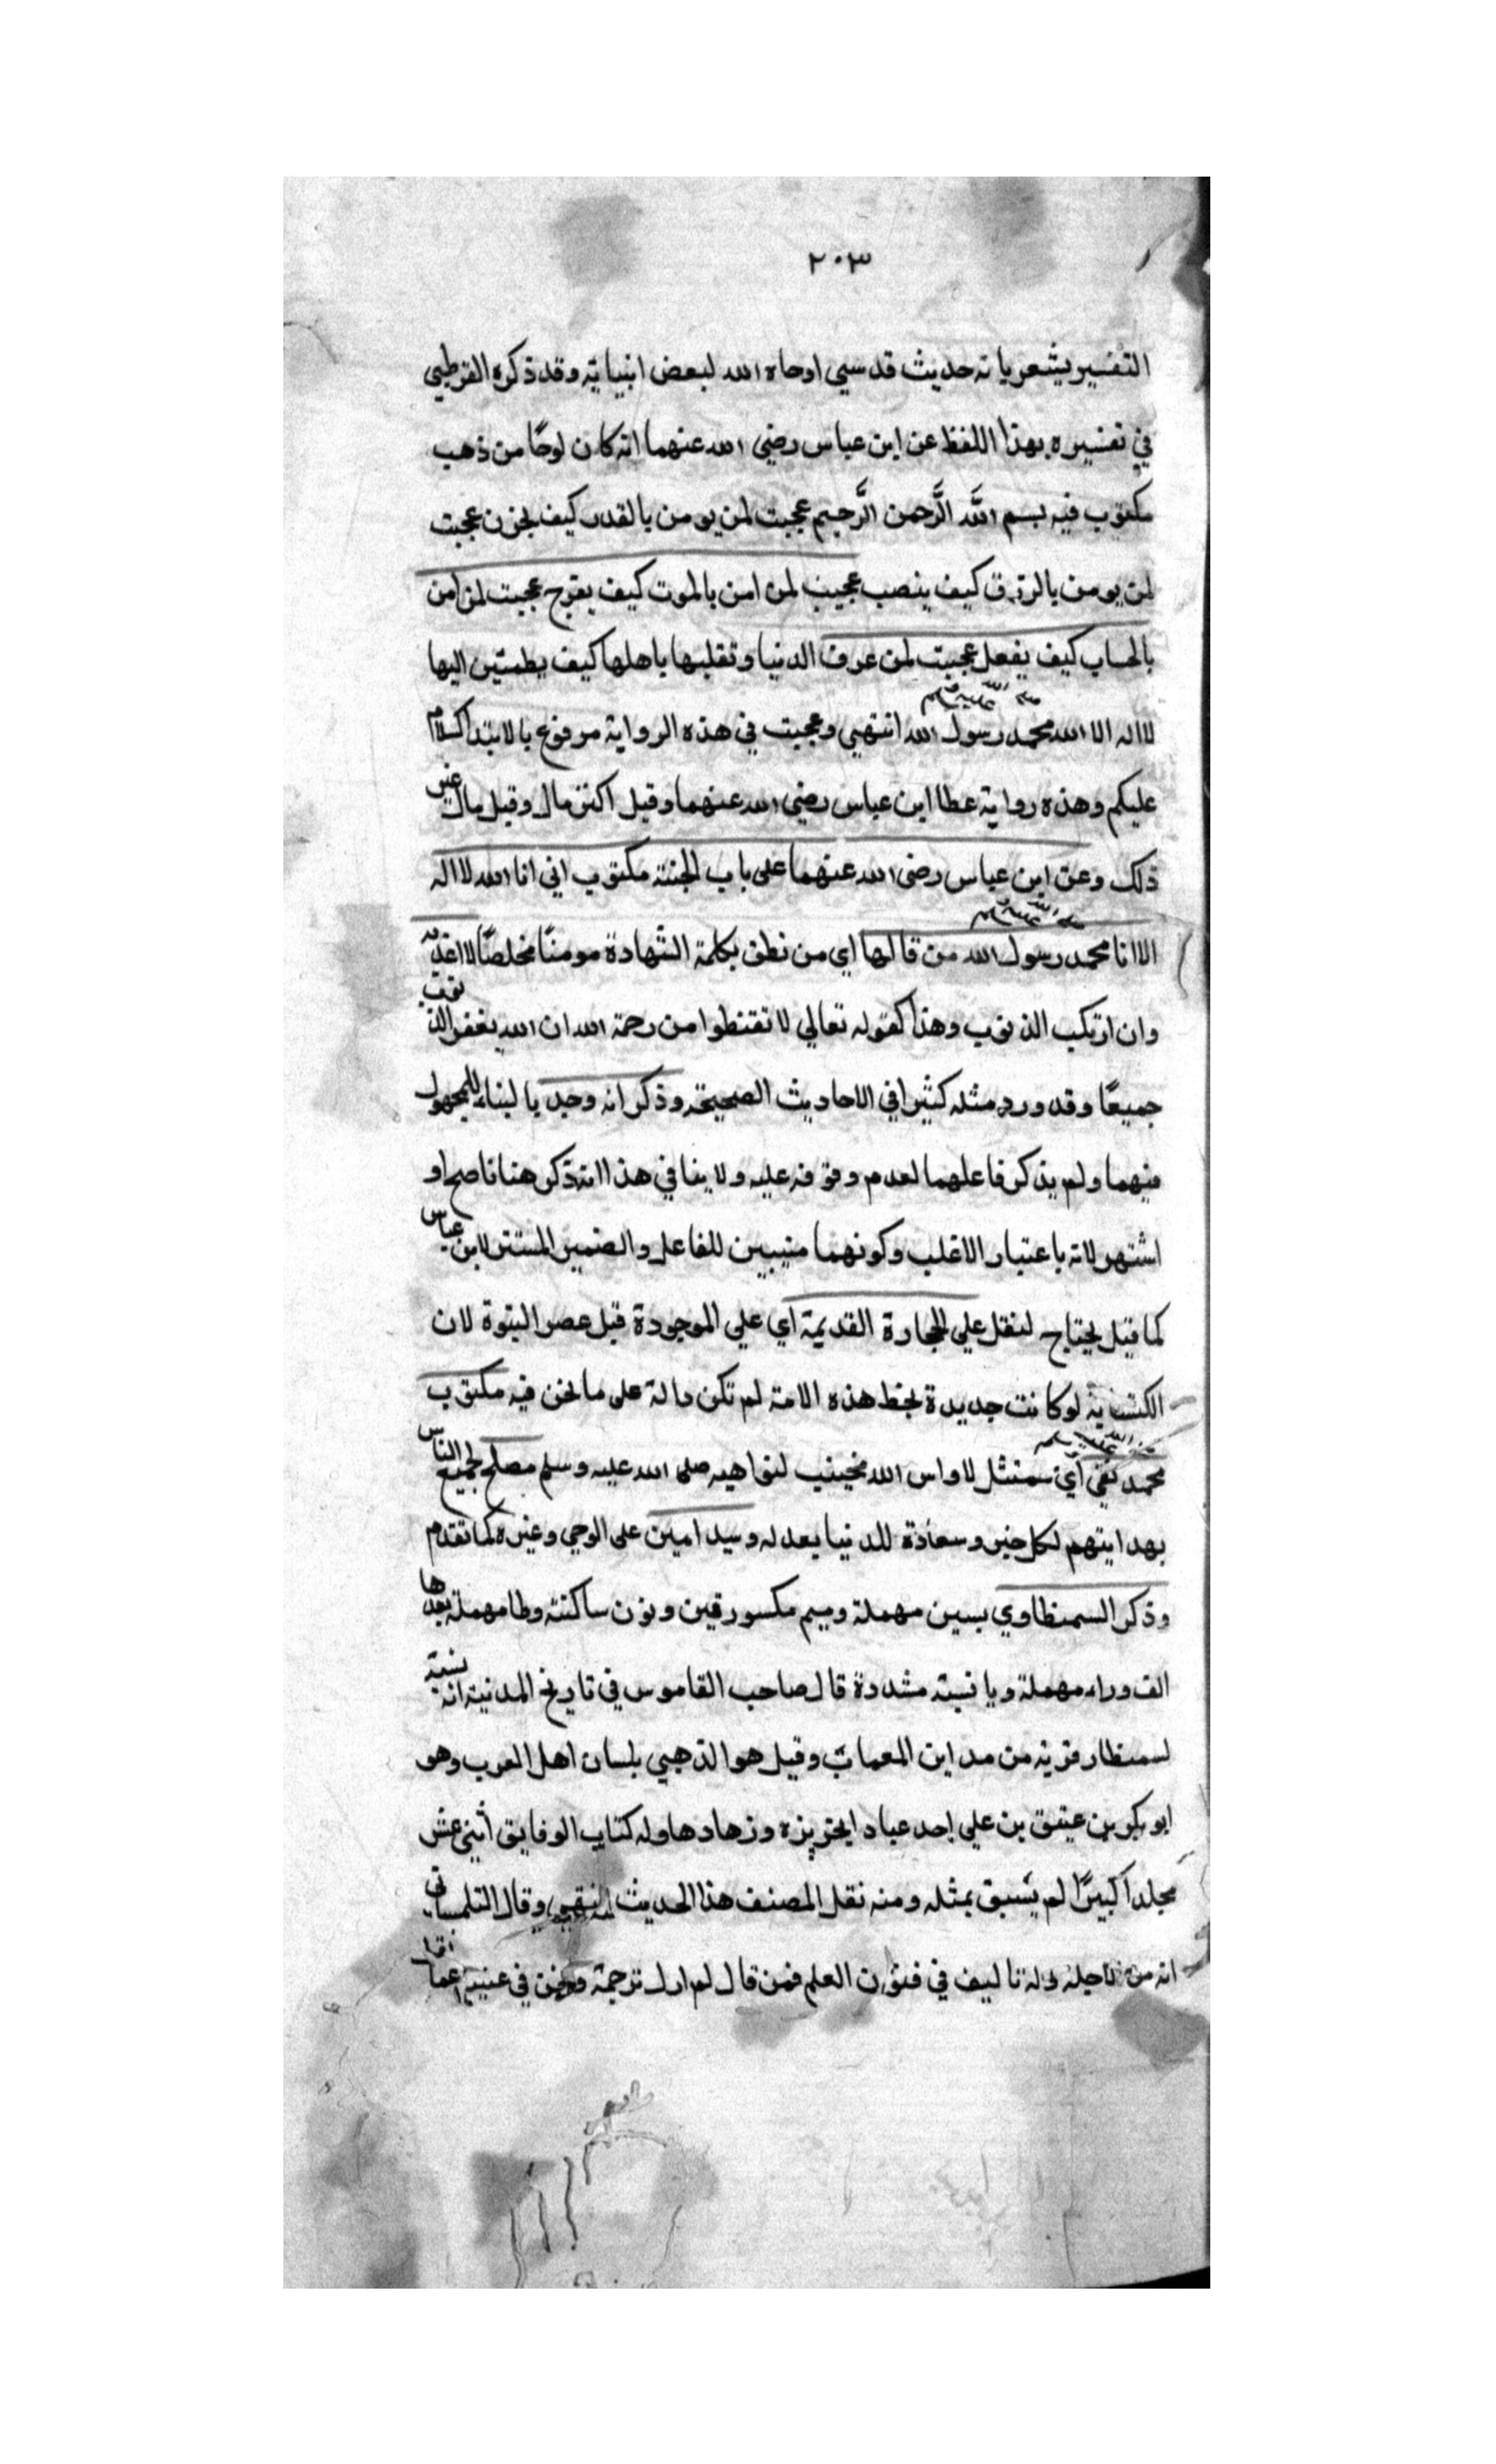 ٢٠٣
التفسير يشعر بانه حديث قدسي اوحاه الله لبعض انبيائه وقد ذكره القرطبي
في تفسيره بهذا اللفظ عن ابن عباس رضي الله عنهما انه كان لوحًا من ذهب
مكتوب فيه بسم الله الرَّحمن الرَّحيم عجبت لمن يومن بالقدر كيف يحزن عجبت
لمن يومن بالرزق كيف ينصب عجبت لمن امن بالموت كيف يفرح عجبت لمن امن
بالحساب كيف يفعل عجبت لمن عرف الدنيا وتقلبها باهلها كيف يطمئن اليها
لا اله الا الله محمد رسول الله صلى الله عليه وسلم انتهي وعجبت في هذه الرواية مرفوع بالابتدا كسلام
عليكم وهذه رواية عطا ابن عباس رضي الله عنهما وقيل اكنز مال وقيل مال غير
ذلك وعن ابن عباس رضى الله عنهما على باب الجنة مكتوب اني انا الله لا اله
الا انا محمد رسول الله صلى الله عليه وسلم من قالها اي من نطق بكلمة الشهادة مومنًا مخلصًا لا اعذبه
وان ارتكب الذنوب وهذا كقوله تعالي لا تقنطوا من رحمة الله ان الله يغفر الذنوب
جميعًا وقد ورد مثله كثيرا في الاحاديث الصحيحة وذكر انه وجد بالبناء للمجهول
فيهما ولم يذكر فاعلهما لعدم وقوفه عليه ولا ينافي هذا انه ذكر هنا ناصح او
اشتهر لانه باعتبار الاغلب وكونهما مبنيين للفاعل والضمير المستتر لابن عباس
كما قيل يحتاج لنقل علي الحجارة القديمة اي علي الموجودة قبل عصر النبوة لان
الكتابة لو كانت جديدة بخط هذه الامة لم تكن دالة على ما نحن فيه مكتوب
محمد صلى الله عليه وسلم تقي اي ممتثل لاوامر الله مجتنب لنواهيه صلى الله عليه وسلم مصلح لجميع الناس
بهدايتهم لكل خير وسعادة للدنيا بعدله وسيد امين على الوحي وغيره كما تقدم
وذكر السمنطاوي بسين مهملة وميم مكسورتين ونون ساكنة وطا مهملة بعدها
الف وراء مهملة ويا نسبة مشددة قال صاحب القاموس في تاريخ المدينة انه نسبة
لسمنطار قرية من مداين المعمات وقيل هو الذهبي بلسان اهل العرب وهو
ابو بكر بن عتيق بن علي احد عباد الجزيزه وزهادها وله كتاب الوقايق اثني عشر
مجلدا كبيرًا لم يسبق بمثله ومنه نقل المصنف هذا الحديث وقال التلمساني
انه من له تاليف في فنون العلم فمن قال لم ار له ترجمة ونحن في غنية عما